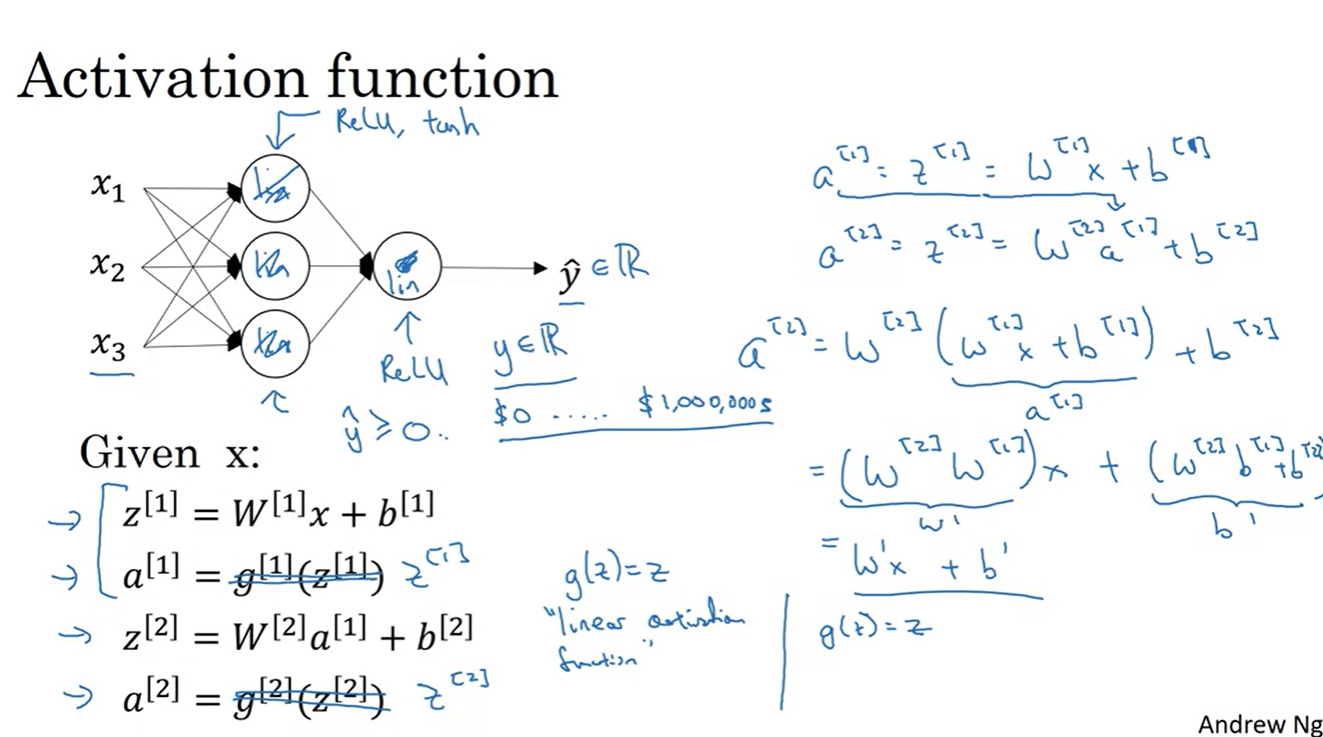 Activation function
ReLU, tanh
x₁
x₂
x₃
lin
ŷ ∈ ℝ
ReLU
ŷ ≥ 0..
y ∈ ℝ
$0 ..... $1,000,000s
Given x:
→ z^[1] = W^[1]x + b^[1]
→ a^[1] = g^[1](z^[1]) z^[1]
→ z^[2] = W^[2]a^[1] + b^[2]
→ a^[2] = g^[2](z^[2]) z^[2]
g(z) = z
"linear activation
function"
a^[1] = z^[1] = W^[1]x + b^[1]
a^[2] = z^[2] = W^[2]a^[1] + b^[2]
a^[2] = W^[2](W^[1]x + b^[1]) + b^[2]
a^[1]
= (W^[2]W^[1])x + (W^[2]b^[1] + b^[2])
W' b'
= W'x + b'
g(z) = z
Andrew Ng